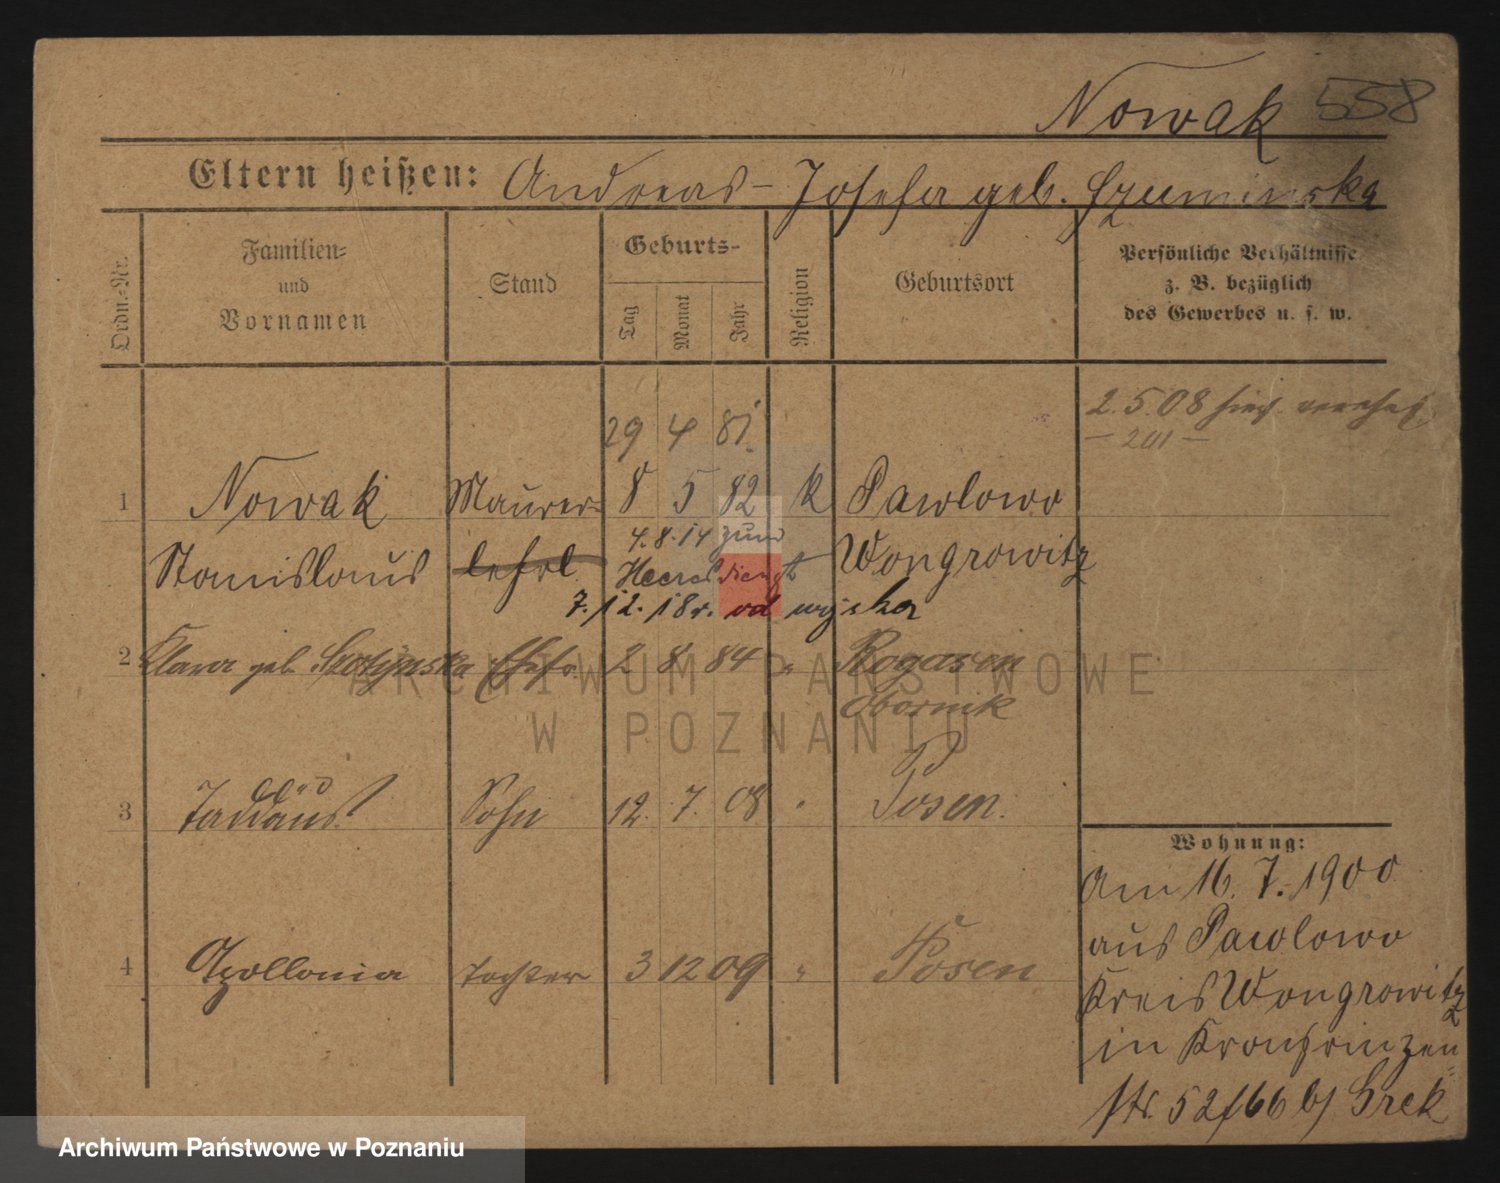 Nowak 558
Eltern heißen: Andreas - Josefa geb. Szuminska
Ordn.-Nr.
Familien-
und
Vornamen
Stand
Geburts-
Tag
Monat
Jahr
Religion
Geburtsort
Persönliche Verhältnisse
z. B. bezüglich
des Gewerbes u. s. w.
29 4 81.
2.5.08
- 201 -
1 Nowak Maurer- 8 5 82 k Pawlowo
Stanislaus lehrl. 4.8.14 zum Wongrowitz
Heeresdienst
7.12.18 r. od wojska
2 Klara geb. Ehefr. 2 8 84 " Rogasen
Obornik
3 Taddäus Sohn 12. 7. 08 " Posen.
4 Apollonia Tochter 3 12 09 " Posen
Wohnung:
Am 16. 7. 1900
aus Pawlowo
Kreis Wongrowitz
in Kronprinzen-
str. 52/66 b/ Grek
ARCHIWUM PAŃSTWOWE
W POZNANIU
Archiwum Państwowe w Poznaniu